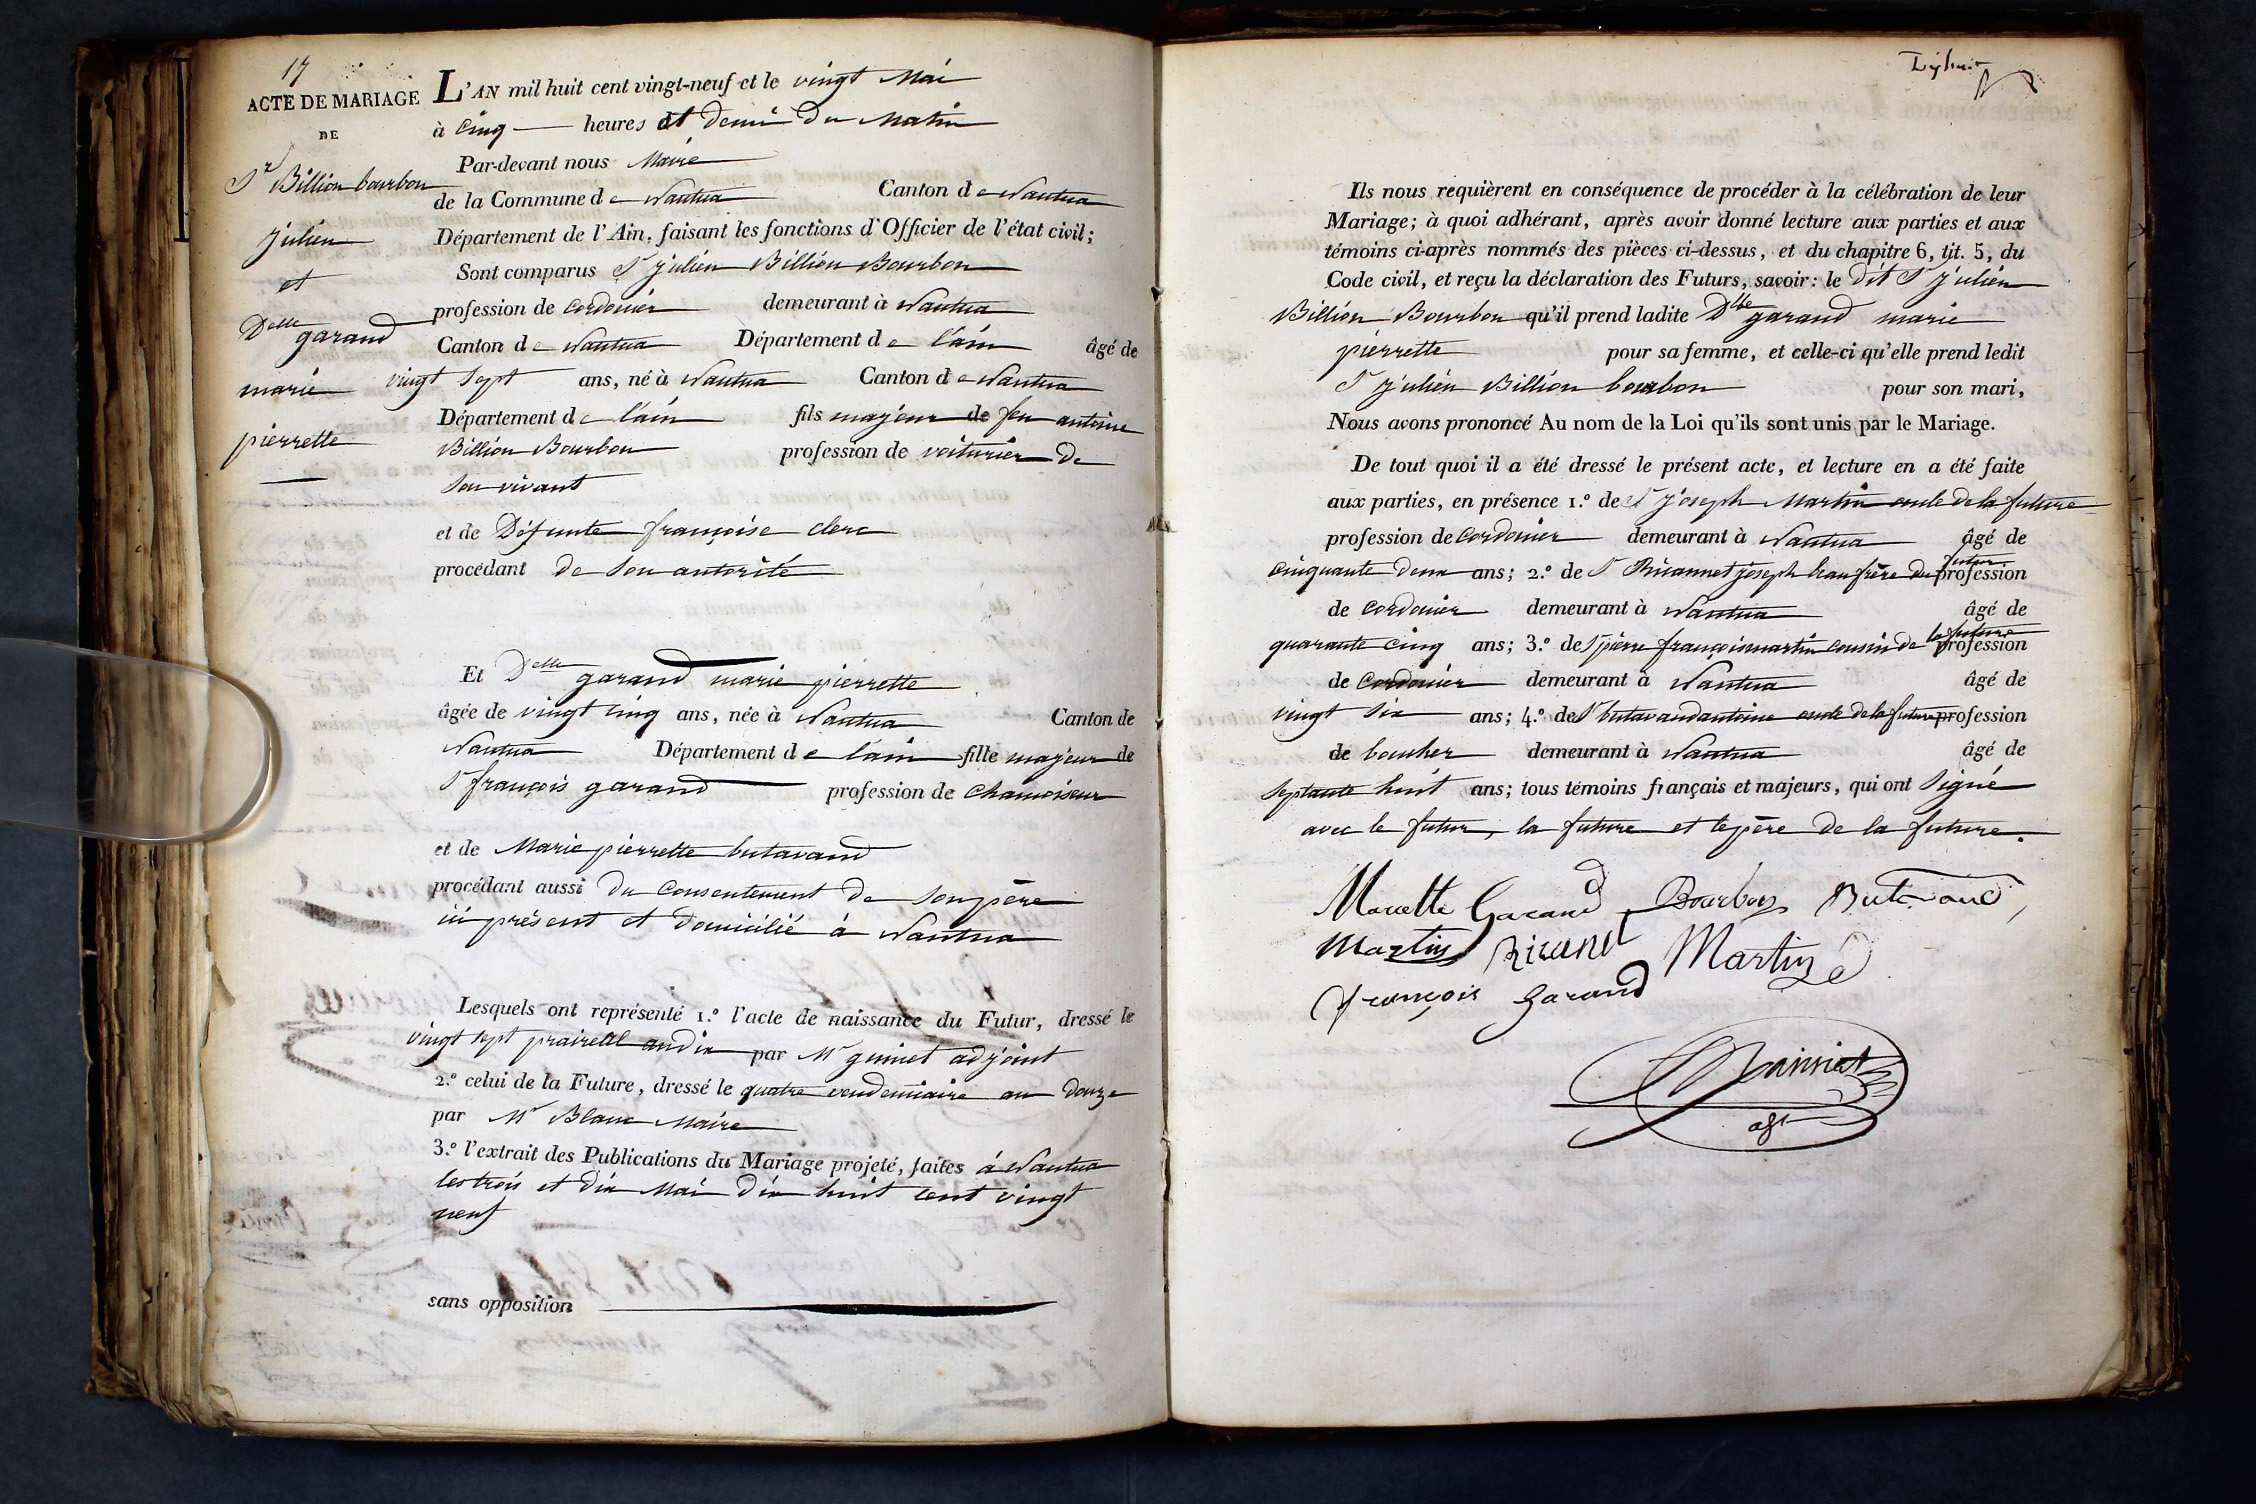 17
ACTE DE MARIAGE
DE
Sr Billion bourbon
julien
et
Delle garand
marie
pierrette
L'AN mil huit cent vingt-neuf et le vingt Mai
à Cinq heures et demi du Matin
Par-devant nous Maire
de la Commune de Nantua Canton de Nantua
Département de l'Ain, faisant les fonctions d'Officier de l'état civil;
Sont comparus Sr julien Billion Bourbon
profession de Cordonier demeurant à Nantua
Canton de Nantua Département de l'ain âgé de
vingt sept ans, né à Nantua Canton de Nantua
Département de l'ain fils majeur de feu antoine
Billion Bourbon profession de voiturier de
son vivant
et de Défunte françoise clerc
procédant de son autorité
Et Delle garand marie pierrette
âgée de vingt cinq ans, née à Nantua Canton de
Nantua Département de l'ain fille majeur de
Sr françois garand profession de Chamoiseur
et de Marie pierrette butavand
procédant aussi du Consentement de son père
ici présent et domicilié à Nantua
Lesquels ont représenté 1.º l'acte de naissance du Futur, dressé le
vingt sept prairial an dix par Mr guinet adjoint
2.º celui de la Future, dressé le quatre vendemiaire an douze
par Mr Blanc Maire
3.º l'extrait des Publications du Mariage projeté, faites à Nantua
les trois et dix Mai dix huit cent vingt
neuf
sans opposition
Ils nous requièrent en conséquence de procéder à la célébration de leur
Mariage; à quoi adhérant, après avoir donné lecture aux parties et aux
témoins ci-après nommés des pièces ci-dessus, et du chapitre 6, tit. 5, du
Code civil, et reçu la déclaration des Futurs, savoir: le dit Sr julien
Billion Bourbon qu'il prend ladite Dlle garand marie
pierrette pour sa femme, et celle-ci qu'elle prend ledit
Sr julien Billion bourbon pour son mari,
Nous avons prononcé Au nom de la Loi qu'ils sont unis par le Mariage.
De tout quoi il a été dressé le présent acte, et lecture en a été faite
aux parties, en présence 1.º de Sr joseph Martin oncle de la future
profession de Cordonier demeurant à Nantua âgé de
cinquante deux ans; 2.º de Sr Ricannet joseph beau frère du futur profession
de Cordonier demeurant à Nantua âgé de
quarante cinq ans; 3.º de Sr pierre françois martin cousin de la future profession
de Cordonier demeurant à Nantua âgé de
vingt six ans; 4.º de Sr butavand antoine oncle de la future profession
de boucher demeurant à Nantua âgé de
septante huit ans; tous témoins français et majeurs, qui ont signé
avec le futur, la future et le père de la future.
Mariette Garand Bourbon Butavand
Martin Ricanet Martin
françois Garand